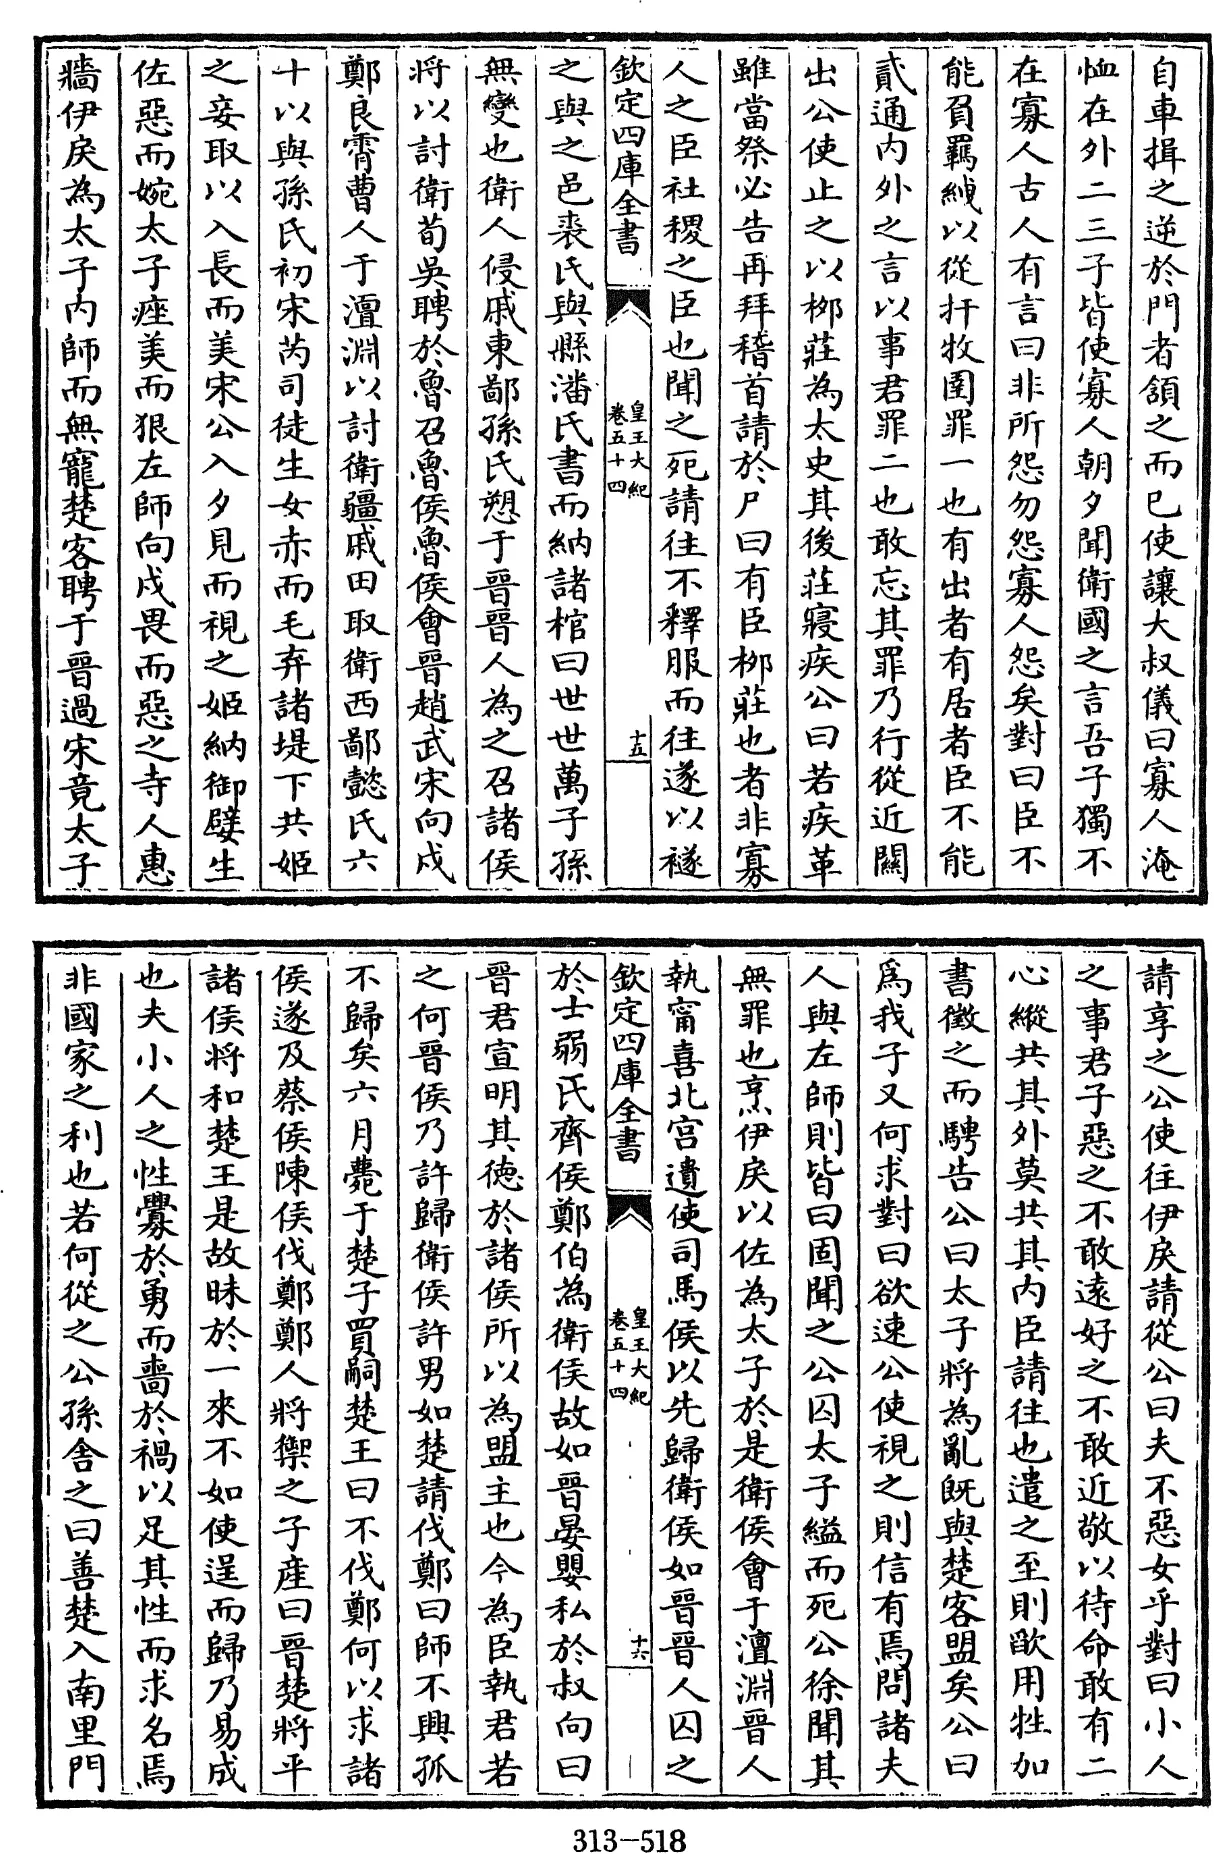 自車揖之逆於門者頷之而已使讓大叔儀曰寡人淹
恤在外二三子皆使寡人朝夕聞衛國之言吾子獨不
在寡人古人有言曰非所怨勿怨寡人怨矣對曰臣不
能負羈絏以從扞牧圉罪一也有出者有居者臣不能
貳通内外之言以事君罪二也敢忘其罪乃行從近關
出公使止之以栁莊為太史其後莊寢疾公曰若疾革
雖當祭必告再拜稽首請於尸曰有臣栁莊也者非寡
人之臣社稷之臣也聞之死請往不釋服而往遂以襚
欽定四庫全書
皇王大紀
卷五十四
十五
之與之邑裘氏與縣潘氏書而納諸棺曰世世萬子孫
無變也衛人侵戚東鄙孫氏愬于晉晉人為之召諸侯
將以討衛荀吳聘於魯召魯侯魯侯會晉趙武宋向戌
鄭良霄曹人于澶淵以討衛疆戚田取衛西鄙懿氏六
十以與孫氏初宋芮司徒生女赤而毛弃諸堤下共姬
之妾取以入長而美宋公入夕見而視之姬納御嬖生
佐惡而婉太子痤美而狠左師向戌畏而惡之寺人惠
牆伊戾為太子内師而無寵楚客聘于晉過宋竟太子
請享之公使往伊戾請從公曰夫不惡女乎對曰小人
之事君子惡之不敢逺好之不敢近敬以待命敢有二
心縱共其外莫共其内臣請往也遣之至則歃用牲加
書徵之而騁告公曰太子將為亂既與楚客盟矣公曰
爲我子又何求對曰欲速公使視之則信有焉問諸夫
人與左師則皆曰固聞之公囚太子縊而死公徐聞其
無罪也烹伊戾以佐為太子於是衛侯會于澶淵晉人
執甯喜北宫遺使司馬侯以先歸衛侯如晉晉人囚之
欽定四庫全書
皇王大紀
卷五十四
十六
於士弱氏齊侯鄭伯為衛侯故如晉晏嬰私於叔向曰
晉君宣明其德於諸侯所以為盟主也今為臣執君若
之何晉侯乃許歸衛侯許男如楚請伐鄭曰師不興孤
不歸矣六月薨于楚子買嗣楚王曰不伐鄭何以求諸
侯遂及蔡侯陳侯伐鄭鄭人將禦之子産曰晉楚將平
諸侯將和楚王是故昧於一來不如使逞而歸乃易成
也夫小人之性釁於勇而嗇於禍以足其性而求名焉
非國家之利也若何從之公孫舍之曰善楚入南里門
313-518